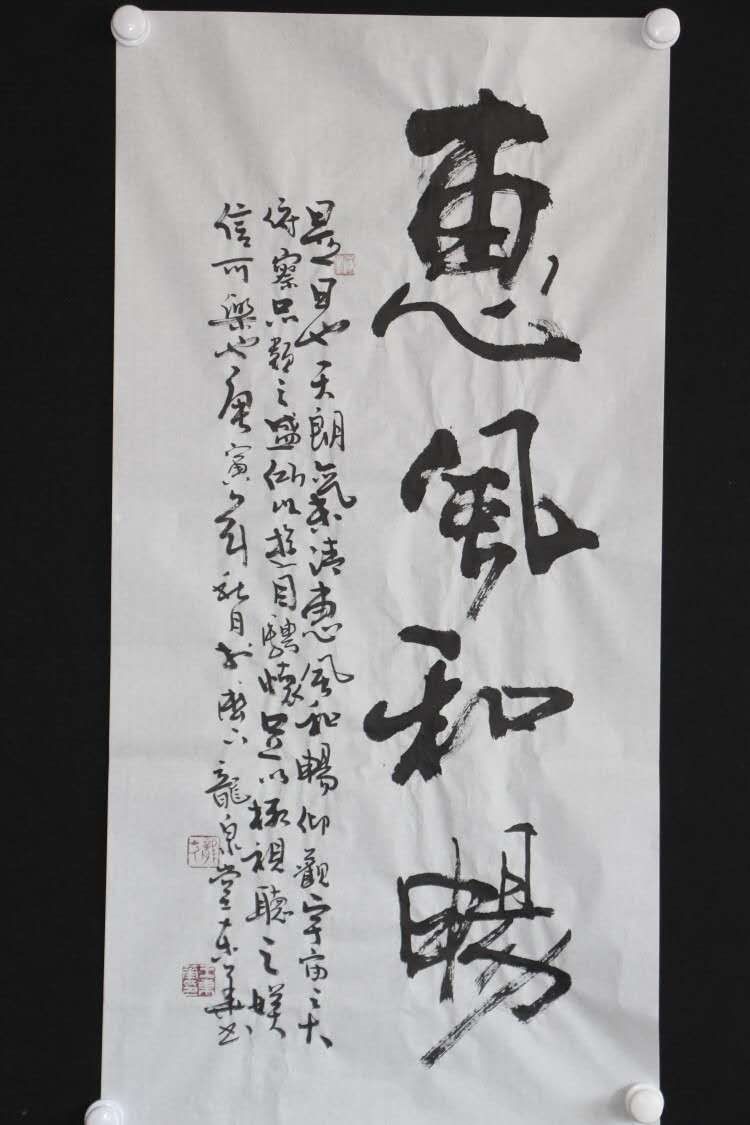 惠風和暢
是日也天朗氣清惠風和暢仰觀宇宙之大
俯察品類之盛所以遊目騁懷足以極視聽之娛
信可樂也庚寅年秋月於龍泉堂東華書